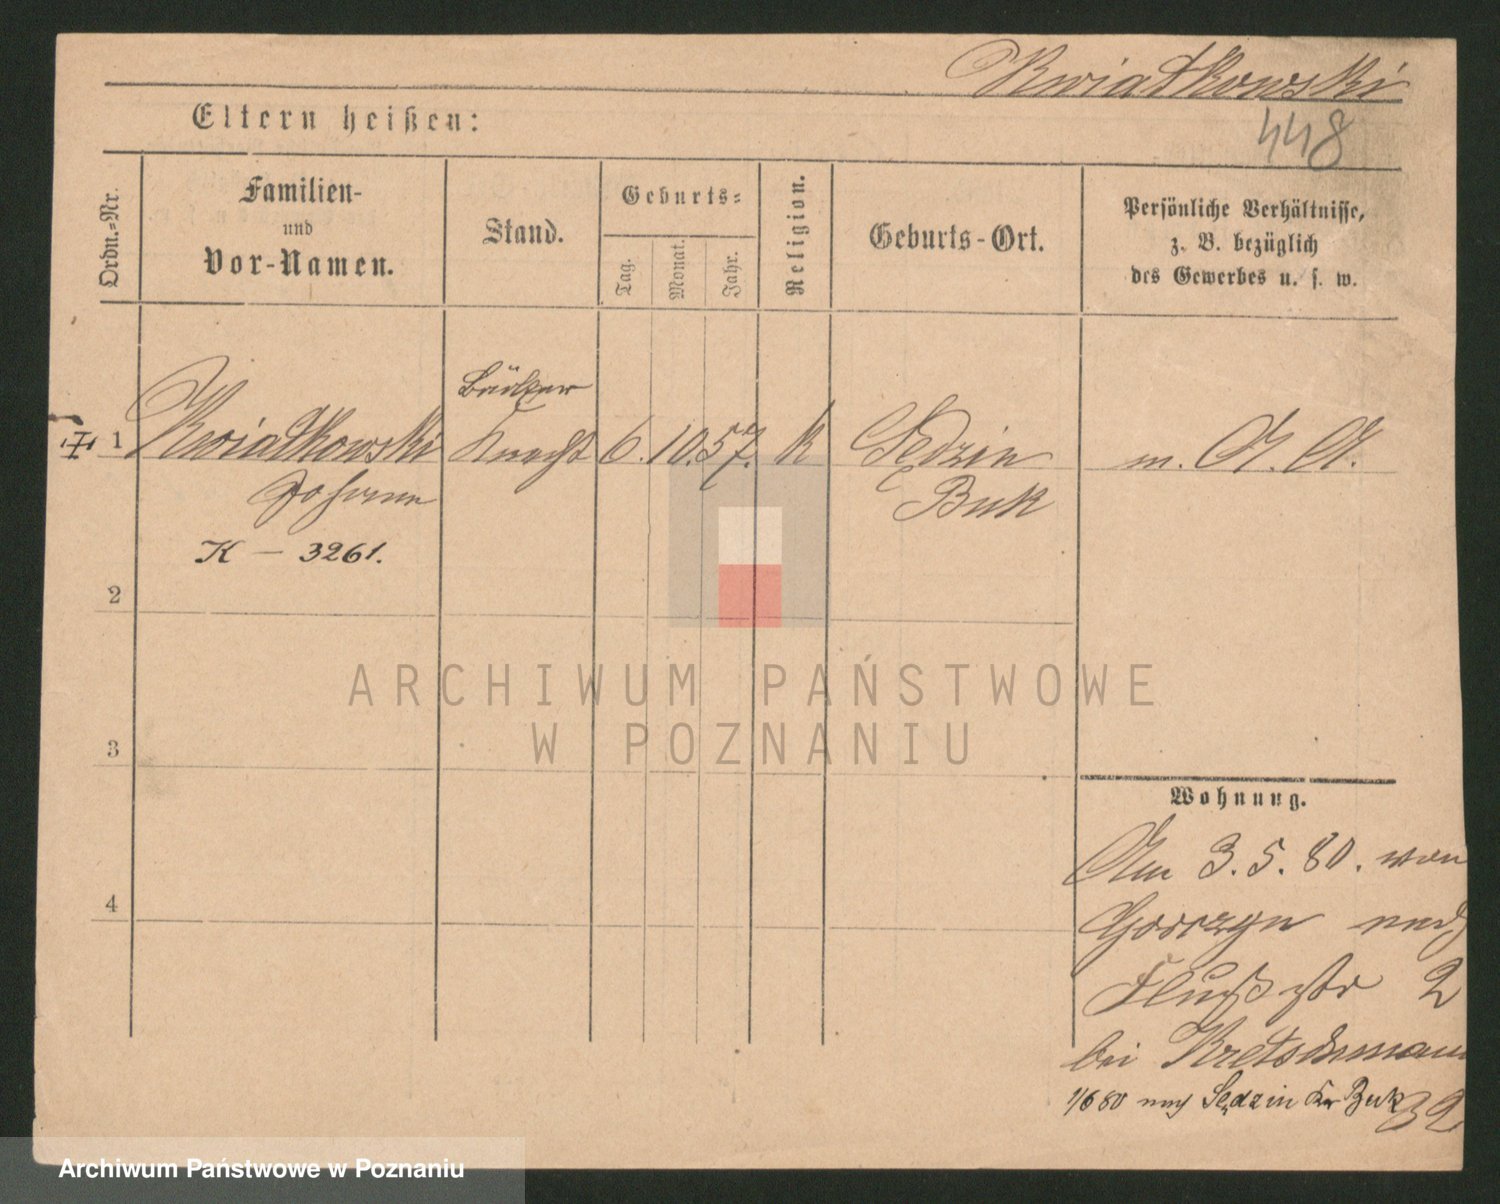 Kwiatkowski
Eltern heißen:
448
Ordn.-Nr.
Familien-
und
Vor-Namen.
Stand.
Geburts-
Tag.
Monat.
Jahr.
Religion.
Geburts-Ort.
Persönliche Verhältnisse,
z. B. bezüglich
des Gewerbes u. s. w.
1 Kwiatkowski Knecht 6. 10. 57. k Sędzin m. A. A.
Johann Buk
K — 3261.
2
3
4
ARCHIWUM PAŃSTWOWE
W POZNANIU
Wohnung.
Am 3. 5. 80. von
Gorczyn nach
Flußstr 2
bei Kretschmann
1/6 80 nach Sędzin Kr Buk
32
Archiwum Państwowe w Poznaniu